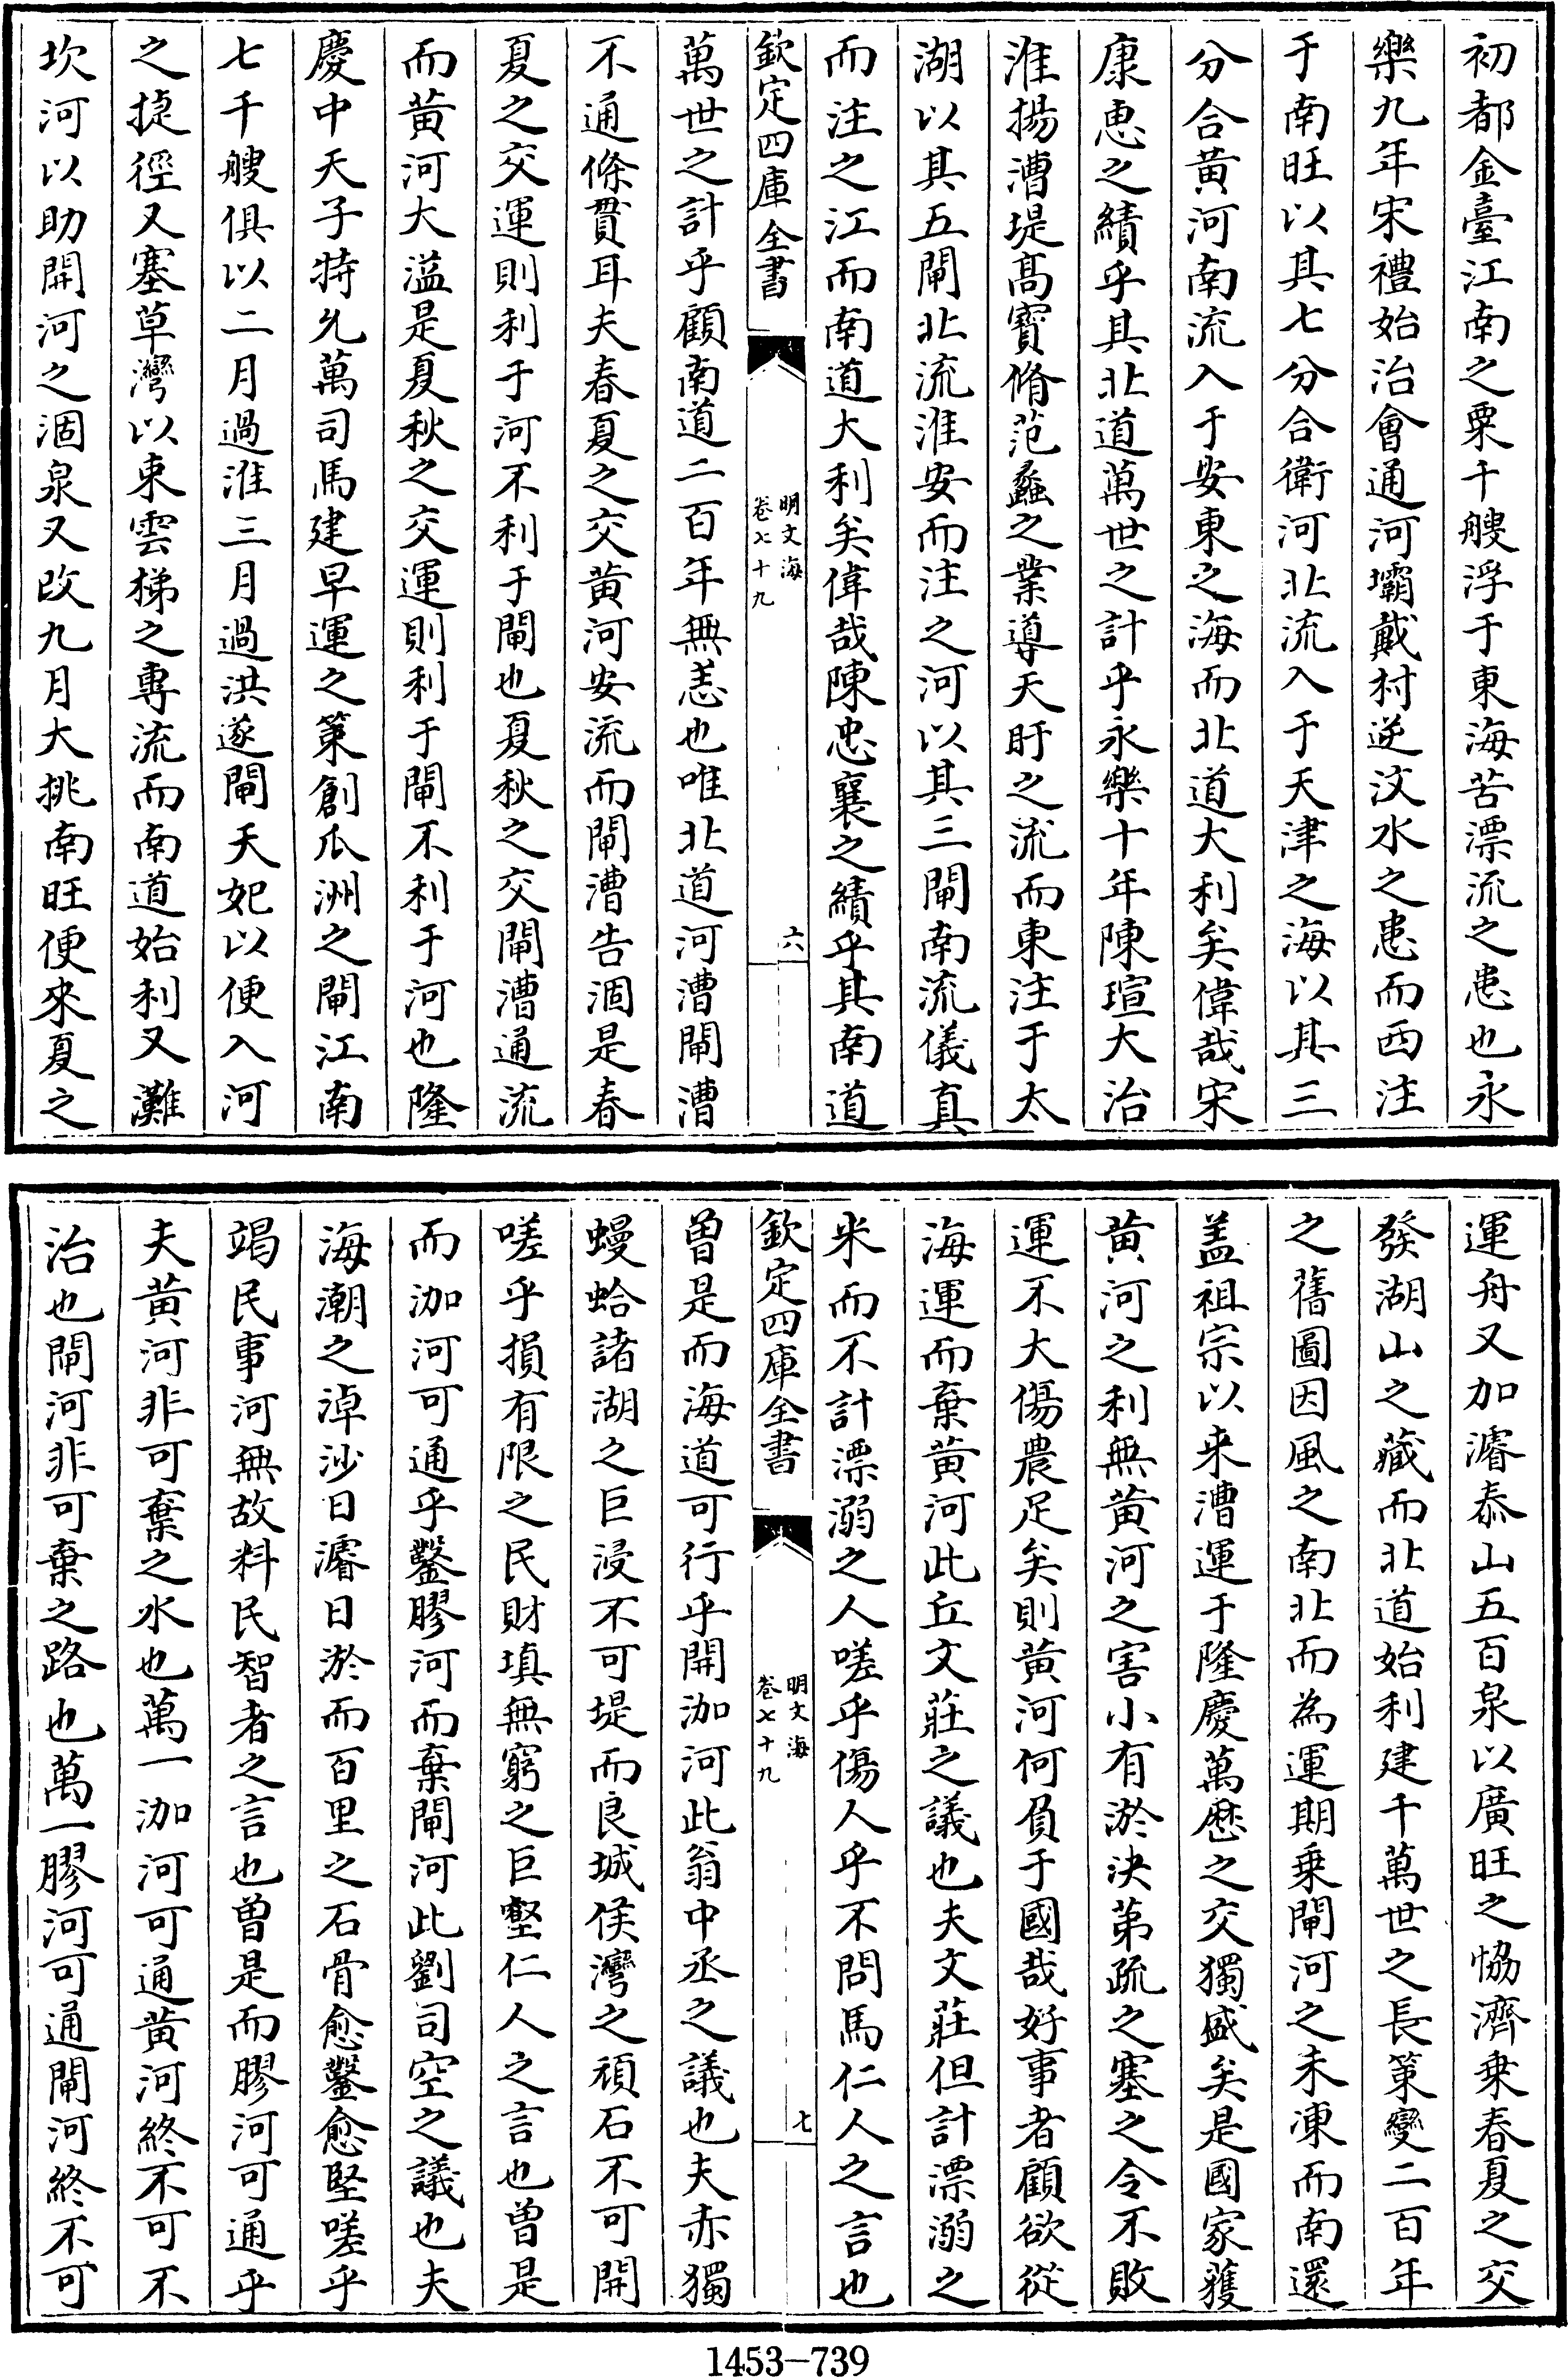 初都金臺江南之粟千艘浮于東海苦漂流之患也永
樂九年宋禮始治會通河壩戴村逆汶水之患而西注
于南旺以其七分合衛河北流入于天津之海以其三
分合黄河南流入于安東之海而北道大利矣偉哉宋
康惠之績乎其北道萬世之計乎永樂十年陳瑄大治
淮揚漕堤髙寳脩范蠡之業導天盱之流而東注于太
湖以其五閘北流淮安而注之河以其三閘南流儀真
而注之江而南道大利矣偉哉陳忠襄之績乎其南道
欽定四庫全書
明文海
卷七十九
六
萬世之計乎顧南道二百年無恙也唯北道河漕閘漕
不通條貫耳夫春夏之交黄河安流而閘漕告涸是春
夏之交運則利于河不利于閘也夏秋之交閘漕通流
而黄河大溢是夏秋之交運則利于閘不利于河也隆
慶中天子特允萬司馬建早運之策創瓜洲之閘江南
七千艘俱以二月過淮三月過洪遂閘天妃以便入河
之捷徑又塞草灣以束雲梯之專流而南道始利又灘
坎河以助開河之涸泉又改九月大挑南旺便來夏之
運舟又加濬泰山五百泉以廣旺之恊濟乗春夏之交
發湖山之藏而北道始利建千萬世之長策變二百年
之舊圖因風之南北而為運期乗閘河之未凍而南還
盖祖宗以来漕運于隆慶萬厯之交獨盛矣是國家獲
黄河之利無黄河之害小有淤决第疏之塞之令不敗
運不大傷農足矣則黄河何負于國哉好事者顧欲從
海運而棄黄河此丘文莊之議也夫文莊但計漂溺之
米而不計漂溺之人嗟乎傷人乎不問馬仁人之言也
欽定四庫全書
明文海
卷七十九
七
曽是而海道可行乎開泇河此翁中丞之議也夫赤獨
蝗蛤諸湖之巨浸不可堤而良城侯灣之頑石不可開
嗟乎損有限之民財填無窮之巨壑仁人之言也曽是
而泇河可通乎鑿膠河而棄閘河此劉司空之議也夫
海潮之淖沙日濬日淤而百里之石骨愈鑿愈堅嗟乎
竭民事河無故料民智者之言也曽是而膠河可通乎
夫黄河非可棄之水也萬一泇河可通黄河終不可不
治也閘河非可棄之路也萬一膠河可通閘河終不可
1453-739